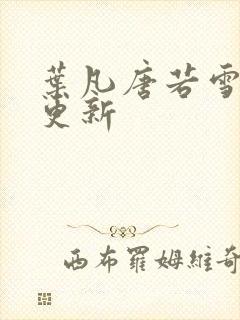 葉凡唐若雪
更新
西布羅姆維奇